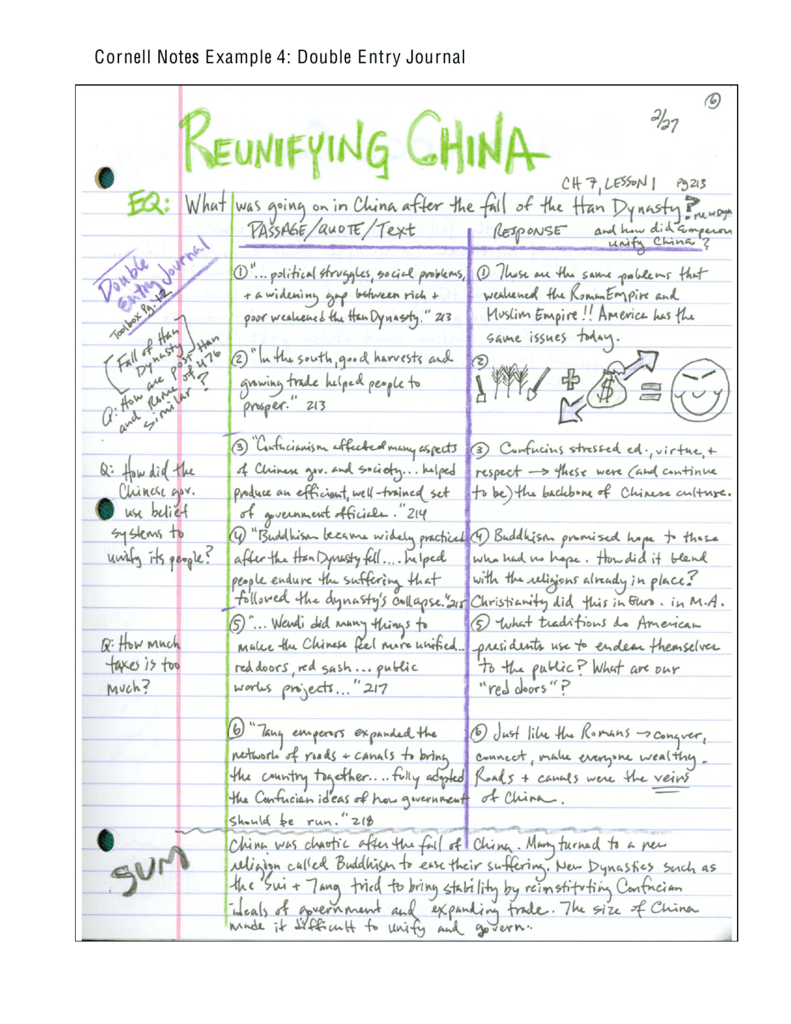 Cornell Notes Example 4: Double Entry Journal
6
2/27
REUNIFYING CHINA
CH 7, LESSON 1 pg 213
EQ: What was going on in China after the fall of the Han Dynasty?
and how did Emperors
unify China?
PASSAGE/QUOTE/Text
RESPONSE
Double
Entry Journal
Toolbox Pg. 12
[Fall of Han
Dynasty]
Q: How are post Han
and Rome of 476
similar?
① "... political struggles, social problems,
+ a widening gap between rich +
poor weakened the Han Dynasty." 213
① These are the same problems that
weakened the Roman Empire and
Muslim Empire!! America has the
same issues today.
② "In the south, good harvests and
growing trade helped people to
prosper." 213
②
+ $ =
Q: How did the
Chinese gov.
use belief
systems to
unify its people?
③ "Confucianism affected many aspects
of Chinese gov. and society... helped
produce an efficient, well-trained set
of government officials." 214
③ Confucius stressed ed., virtue, +
respect → these were (and continue
to be) the backbone of Chinese culture.
④ "Buddhism became widely practiced
after the Han Dynasty fell.... helped
people endure the suffering that
followed the dynasty's collapse." 215
④ Buddhism promised hope to those
who had no hope. How did it blend
with the religions already in place?
Christianity did this in Euro. in M.A.
Q: How much
taxes is too
much?
⑤ "... Wendi did many things to
make the Chinese feel more unified...
red doors, red sash... public
works projects..." 217
⑤ What traditions do American
presidents use to endear themselves
to the public? What are our
"red doors"?
⑥ "Tang emperors expanded the
network of roads + canals to bring
the country together.... fully adopted
the Confucian ideas of how government
should be run." 218
⑥ Just like the Romans → conquer,
connect, make everyone wealthy.
Roads + canals were the veins
of China.
SUM
China was chaotic after the fall of China. Many turned to a new
religion called Buddhism to ease their suffering. New Dynasties such as
the Sui + Tang tried to bring stability by reinstituting Confucian
ideals of government and expanding trade. The size of China
made it difficult to unify and govern.